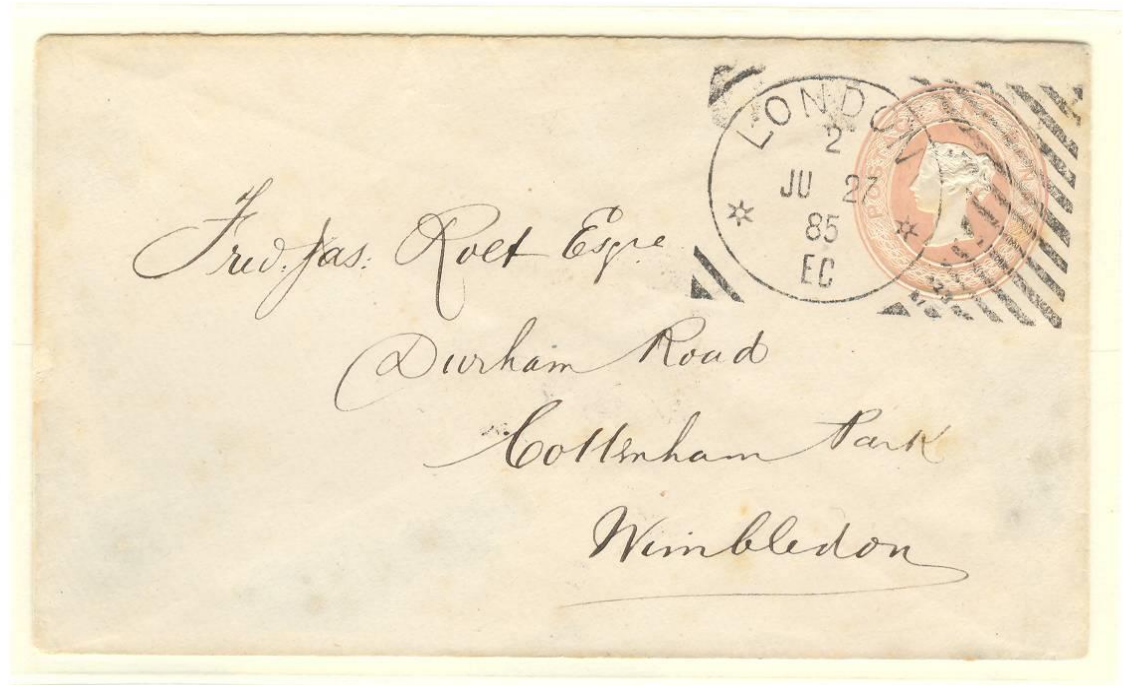 LONDON
2
JU 27
85
EC
Fred. Jas. Roet Esqre
Durham Road
Cottenham Park
Wimbledon